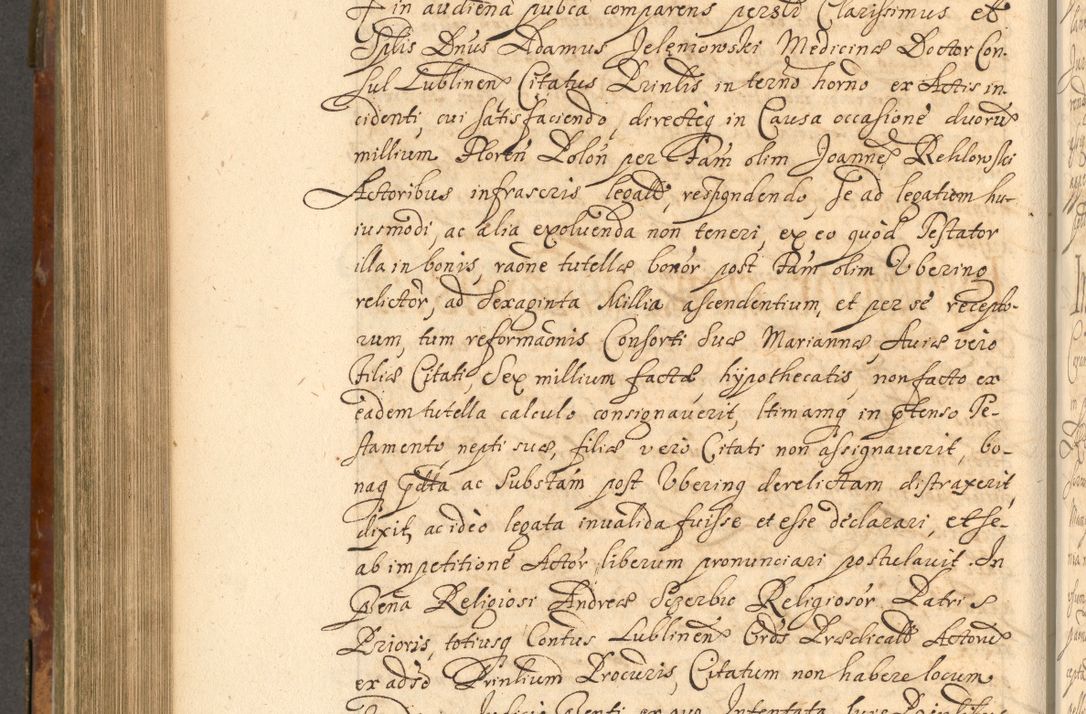 in audiena pubca comparens persłr Clarissimus et
Spłis Dnus Adamus Jeleniowski Medicinæ Doctor Con-
sul Lublinen Citatus Prinlis in terno horno ex Actis in-
cidenti, cui satisfaciendo, directeq in Causa occasione duoru
millium Floren Polon per Fam olim Joannē Rehlowski
Actoribus infrascris legatt, respondendo, se ad legatum hu-
iusmodi, ac alia exoluenda non teneri, ex eo quòd Testator
illa in bonis, raone tutellæ bonor post Fam olim Ubering
relictor, ad Sexaginta Millia ascendentium, et per se recepto-
rum, tum reformaonis Consorti suæ Mariannæ, Auiæ vero
Filiæ Citati, Sex millium factæ hypothecatis, non facto ex
eadem tutella calculo consignauerit, ltimamq in ptenso Te-
stamento nepti suæ, filiæ vero Citati non assignauerit, bo-
naq pdta ac Substam post Ubering derelictam distraxerit,
dixit, ac ideo legata inualida fuisse et esse declarari, et se
ab impetitione Actor liberum pronunciari postulauit. In
Pøena Religiosi Andreæ Sczerbic Religiosor Patris
Prioris, totiusq Contus Lublinen Ords Prædicatt Actoru
ex adso Prinlium Procuris, Citatum non habere locum